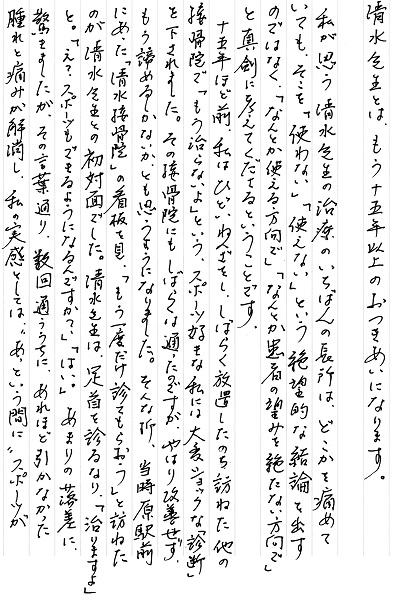 清水先生とは、もう十五年以上のおつきあいになります。
私が思う清水先生の治療のいちばんの長所は、どこかを痛めて
いても、そこを「使わない」「使えない」という絶望的な結論を出す
のではなく、「なんとか使える方向で」「なんとか患者の望みを絶たない方向で」
と真剣に考えてくださるということです。
十五年ほど前、私はひどいねんざをし、しばらく放置したのち訪ねた他の
接骨院で「もう治らないよ」という、スポーツ好きな私には大変ショックな「診断」
を下されました。その接骨院にもしばらくは通ったのですが、やはり改善せず、
もう諦めるしかないか、とも思うようになりました。そんな折、当時原駅前
にあった清水接骨院の看板を見、「もう一度だけ診てもらおう」と訪ねた
のが清水先生との初対面でした。清水先生は、足首を診るなり、「治りますよ」
と。「え？スポーツもできるようになるんですか？」「はい。」あまりの落差に、
驚きましたが、その言葉通り、数回通ううちに、あれほど引かなかった
腫れと痛みが解消し、私の実感としては、“あっという間に”スポーツが